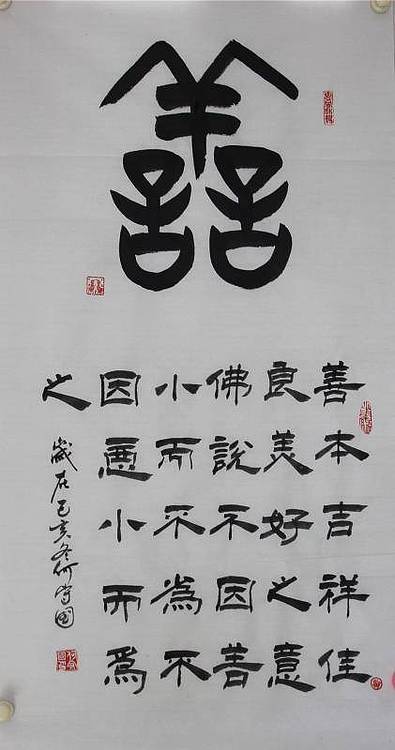 善
善本吉祥佳
良美好之意
佛說不因善
小而不為不
因惡小而為
之
歲在己亥冬何守國